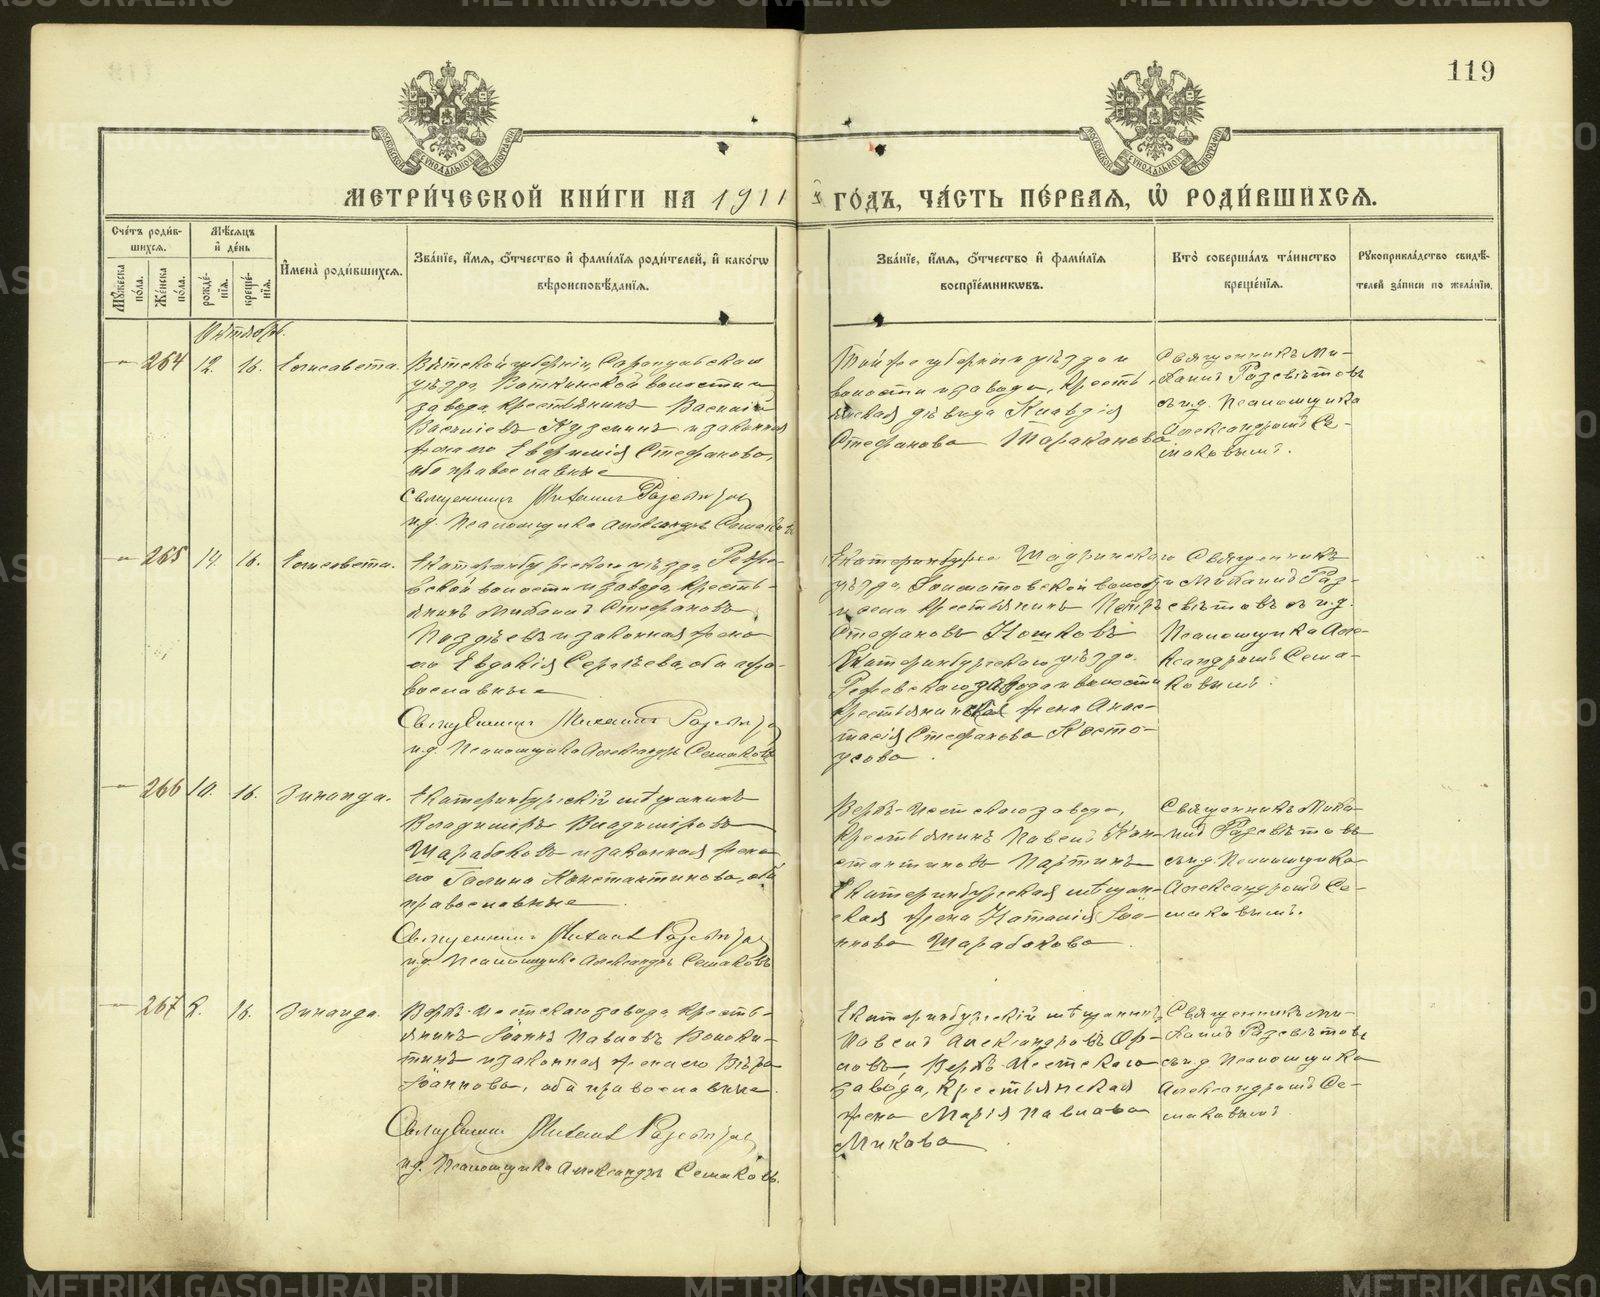 119
МЕТРИ́ЧЕСКОЙ КНИ́ГИ НА 1911 ГО́ДЪ, ЧА́СТЬ ПЕ́РВАЯ, Ѡ҆ РОДИ́ВШИХСЯ.
Сче́тъ роди́в-
шихся.
Му́жеска
по́ла.
Же́нска
по́ла.
Мѣ́сяцъ
и҆ де́нь
рожде́-
нїя.
креще́-
нїя.
И҆мена̀ роди́вшихся.
Зва́нїе, и҆́мя, ѻ҆́тчество и҆ фами́лїя роди́телей, и҆ како́гѡ
вѣроисповѣ́данїя.
Зва́нїе, и҆́мя, ѻ҆́тчество и҆ фами́лїя
воспрїе́мникѡвъ.
Кто̀ соверша́лъ та́инство
креще́нїя.
Рꙋкоприкла́дство свидѣ́-
телей за́писи по жела́нїю.
Октябрь.
264 12. 16. Елисавета.
Вятской губернiи, Сарапульскаго
уѣзда, Воткинской волости и
завода, крестьянинъ Василiй
Василiевъ Кузминъ и законная
жена его Евфимiя Стефанова,
оба православные
Священникъ Михаилъ Разсвѣтовъ
и.д. Псаломщика Александръ Семаковъ
Той же губернiи уѣзда и
волости и завода, кресть-
янская дѣвица Клавдiя
Стефанова Тараканова
Священникъ Ми-
хаилъ Разсвѣтовъ
съ и.д. Псаломщика
Александромъ Се-
маковымъ.
265 14. 16. Елисавета.
Екатеринбургскаго уѣзда, Режев-
ской волости и завода, кресть-
янинъ Михаилъ Стефановъ
Поздѣевъ и законная жена
его Евдокiя Сергѣева, оба пра-
вославные
Священникъ Михаилъ Разсвѣтовъ
и.д. Псаломщика Александръ Семаковъ
Шадринскаго
уѣзда, волости
и села крестьянинъ Петръ
Стефановъ Кошковъ
Екатеринбургскаго уѣзда
завода и волости
крестьянинская жена Анас-
тасiя Стефанова Косто-
усова.
Священникъ
Михаилъ Раз-
свѣтовъ съ и.д.
Псаломщика Але-
ксандромъ Сема-
ковымъ.
266 10. 16. Зинаида.
Екатеринбургскiй мѣщанинъ
Владимiръ Владимiровъ
Шарабаковъ и законная жена
его Галина Константинова, оба
православные.
Священникъ Михаилъ Разсвѣтовъ
и.д. Псаломщика Александръ Семаковъ
Верхъ-Исетскаго завода,
крестьянинъ Павелъ Кон-
стантиновъ Партинъ
Екатеринбургская мѣщан-
ская жена Наталiя Iоан-
нова Шарабакова.
Священникъ Миха-
илъ Разсвѣтовъ
съ и.д. Псаломщика
Александромъ Се-
маковымъ.
267 2. 16. Зинаида.
Верхъ-Исетскаго завода, кресть-
янинъ Iоаннъ Павловъ Воноки-
тинъ и законная жена его Вѣра
Iоаннова, оба православные.
Священникъ Михаилъ Разсвѣтовъ
и.д. Псаломщика Александръ Семаковъ.
Екатеринбургскiй мѣщанинъ
Павелъ Александровъ Ор-
ловъ, Верхъ-Исетскаго
завода, крестьянская
жена Марiя Павлова
Микова
Священникъ Ми-
хаилъ Разсвѣтовъ
съ и.д. Псаломщика
Александромъ Се-
маковымъ.
METRIKI.GASO-URAL.RU